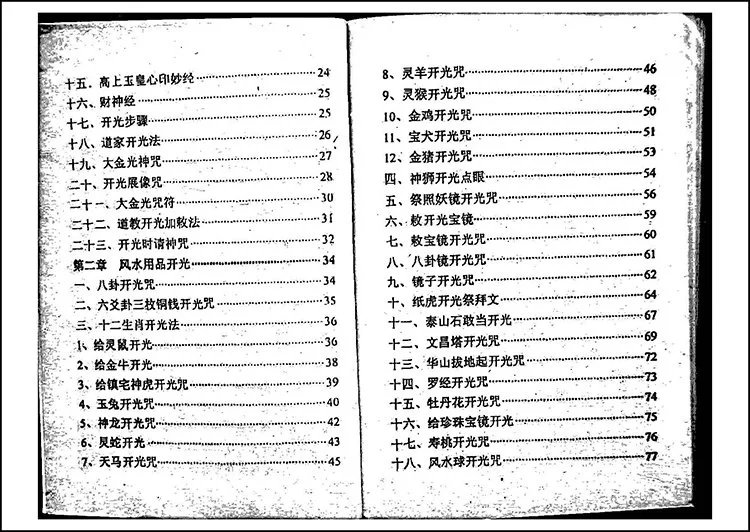 十五、高上玉皇心印妙经……24
十六、财神经……25
十七、开光步骤……25
十八、道家开光法……26
十九、大金光神咒……27
二十、开光展像咒……28
二十一、大金光咒符……30
二十二、道教开光加敕法……31
二十三、开光时请神咒……32
第二章 风水用品开光……34
一、八卦开光咒……34
二、六爻卦三枚铜钱开光咒……35
三、十二生肖开光法……36
1、给灵鼠开光……36
2、给金牛开光……38
3、给镇宅神虎开光咒……39
4、玉兔开光咒……40
5、神龙开光咒……42
6、灵蛇开光……43
7、天马开光咒……45
8、灵羊开光咒……46
9、灵猴开光咒……48
10、金鸡开光咒……50
11、宝犬开光咒……51
12、金猪开光咒……53
四、神狮开光点眼……54
五、祭照妖镜开光咒……56
六、敕开光宝镜……59
七、敕宝镜开光咒……60
八、八卦镜开光咒……61
九、镜子开光咒……62
十、纸虎开光祭拜文……64
十一、泰山石敢当开光……67
十二、文昌塔开光咒……69
十三、华山拔地起开光咒……72
十四、罗经开光咒……73
十五、牡丹花开光咒……74
十六、给珍珠宝镜开光……75
十七、寿桃开光咒……76
十八、风水球开光咒……77